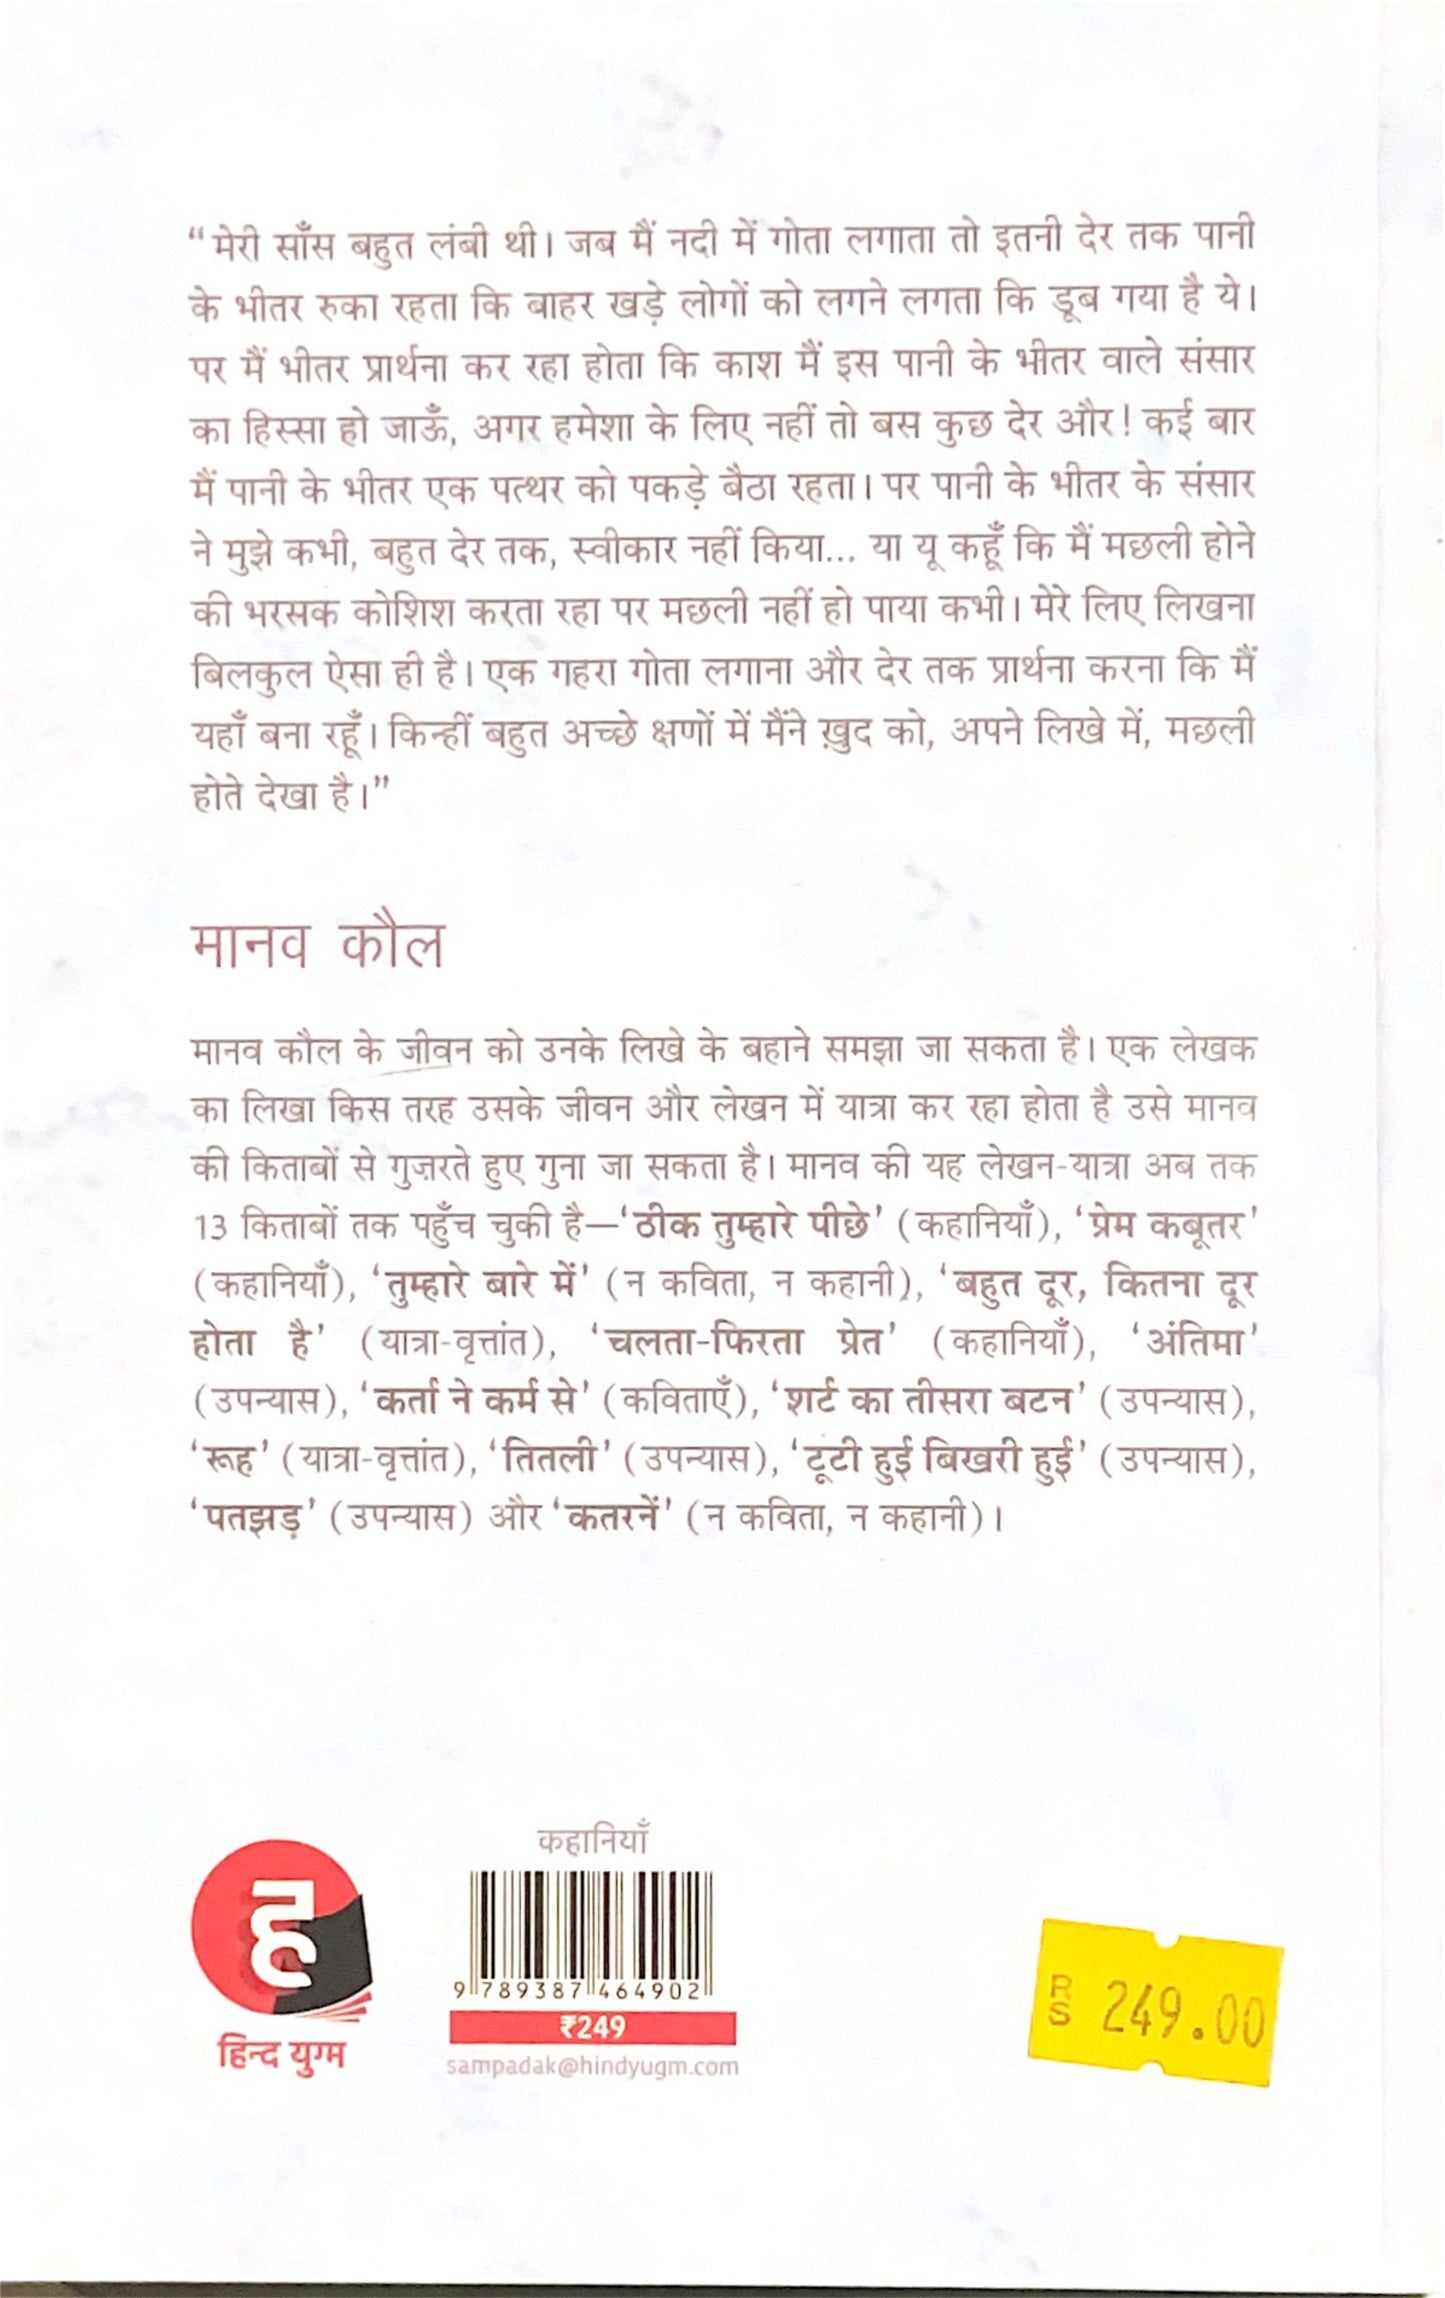 “मेरी साँस बहुत लंबी थी। जब मैं नदी में गोता लगाता तो इतनी देर तक पानी
के भीतर रुका रहता कि बाहर खड़े लोगों को लगने लगता कि डूब गया है ये।
पर मैं भीतर प्रार्थना कर रहा होता कि काश मैं इस पानी के भीतर वाले संसार
का हिस्सा हो जाऊँ, अगर हमेशा के लिए नहीं तो बस कुछ देर और! कई बार
मैं पानी के भीतर एक पत्थर को पकड़े बैठा रहता। पर पानी के भीतर के संसार
ने मुझे कभी, बहुत देर तक, स्वीकार नहीं किया... या यू कहूँ कि मैं मछली होने
की भरसक कोशिश करता रहा पर मछली नहीं हो पाया कभी। मेरे लिए लिखना
बिलकुल ऐसा ही है। एक गहरा गोता लगाना और देर तक प्रार्थना करना कि मैं
यहाँ बना रहूँ। किन्हीं बहुत अच्छे क्षणों में मैंने ख़ुद को, अपने लिखे में, मछली
होते देखा है।”
मानव कौल
मानव कौल के जीवन को उनके लिखे के बहाने समझा जा सकता है। एक लेखक
का लिखा किस तरह उसके जीवन और लेखन में यात्रा कर रहा होता है उसे मानव
की किताबों से गुज़रते हुए गुना जा सकता है। मानव की यह लेखन-यात्रा अब तक
13 किताबों तक पहुँच चुकी है—‘ठीक तुम्हारे पीछे’ (कहानियाँ), ‘प्रेम कबूतर’
(कहानियाँ), ‘तुम्हारे बारे में’ (न कविता, न कहानी), ‘बहुत दूर, कितना दूर
होता है’ (यात्रा-वृत्तांत), ‘चलता-फिरता प्रेत’ (कहानियाँ), ‘अंतिमा’
(उपन्यास), ‘कर्ता ने कर्म से’ (कविताएँ), ‘शर्ट का तीसरा बटन’ (उपन्यास),
‘रूह’ (यात्रा-वृत्तांत), ‘तितली’ (उपन्यास), ‘टूटी हुई बिखरी हुई’ (उपन्यास),
‘पतझड़’ (उपन्यास) और ‘कतरनें’ (न कविता, न कहानी)।
ह
हिन्द युग्म
कहानियाँ
9 789387 464902
₹249
sampadak@hindyugm.com
RS 249.00